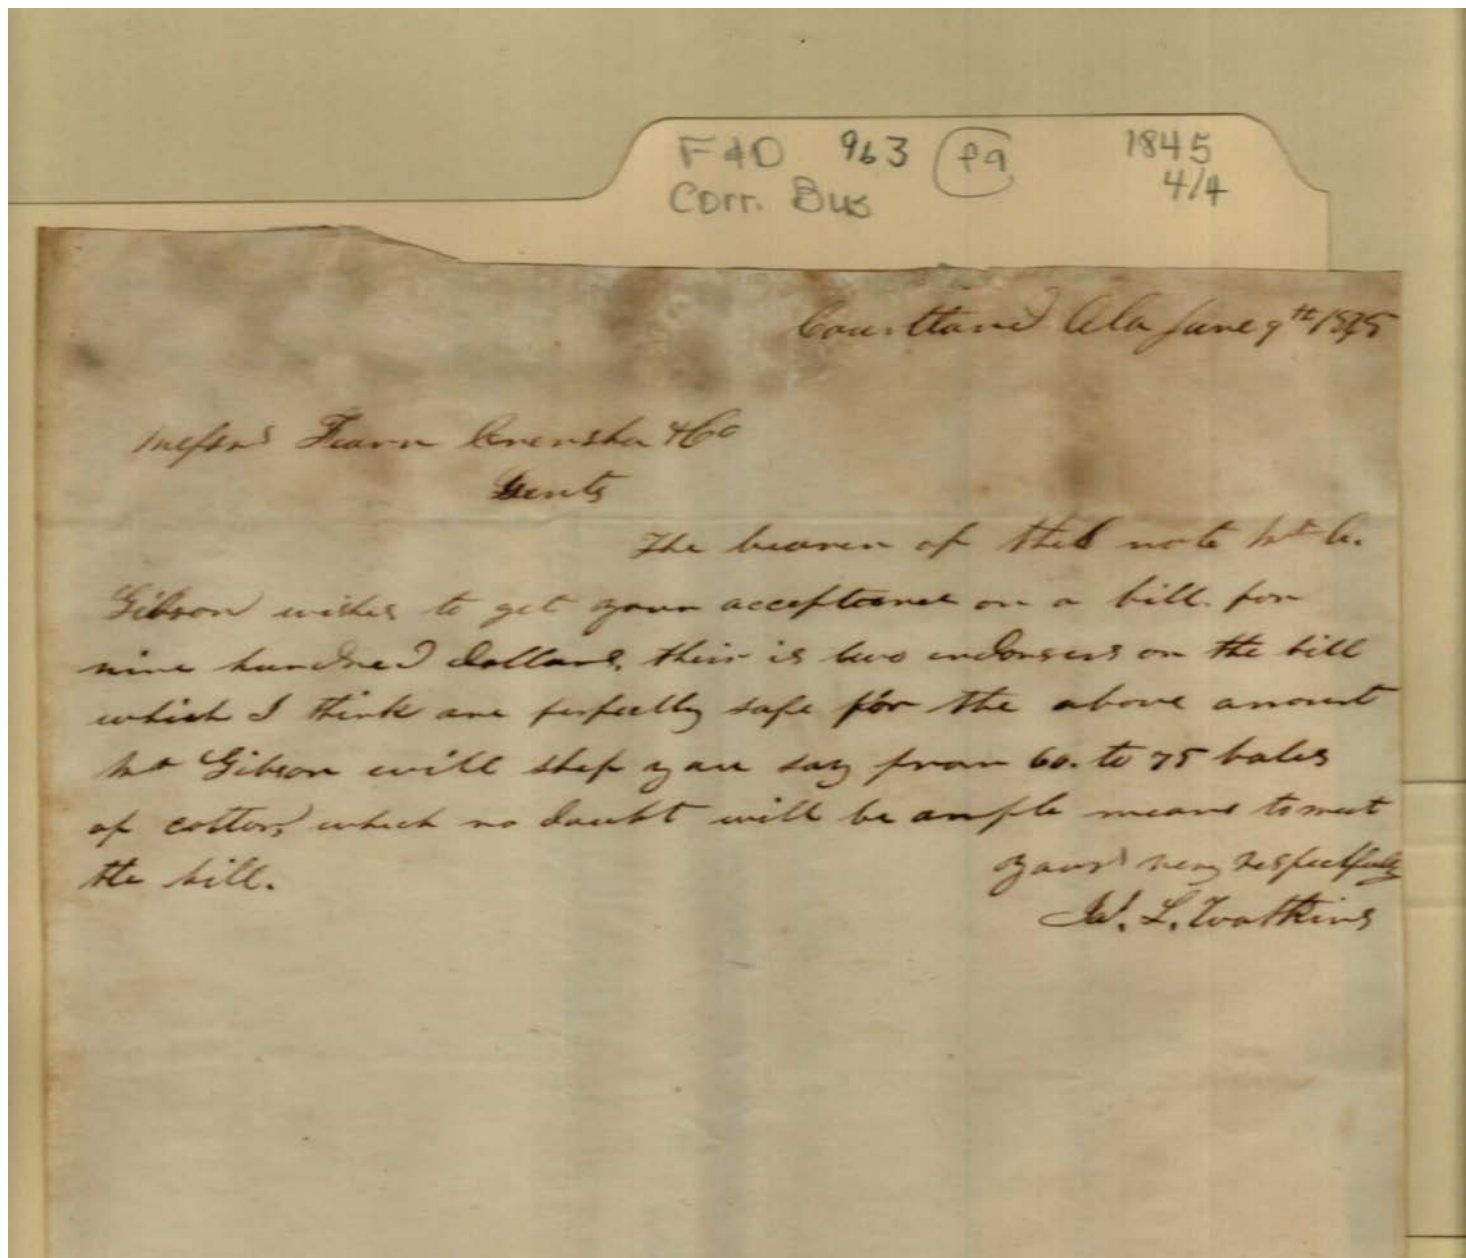 F&D 963 f9 1845
Corr. Bus 4/4
Courtland Ala June 9th 1845
Messrs Fearn Crensha & Co
Gents
The bearer of this note Mr C.
Gibson wishes to get your acceptance on a bill for
nine hundred dollars, their is two endorsers on the bill
which I think are perfectly safe for the above amount
Mr Gibson will ship you say from 60. to 75 bales
of cotton, which no doubt will be ample means to meet
the bill.
yours very respectfully
W. L. Watkins